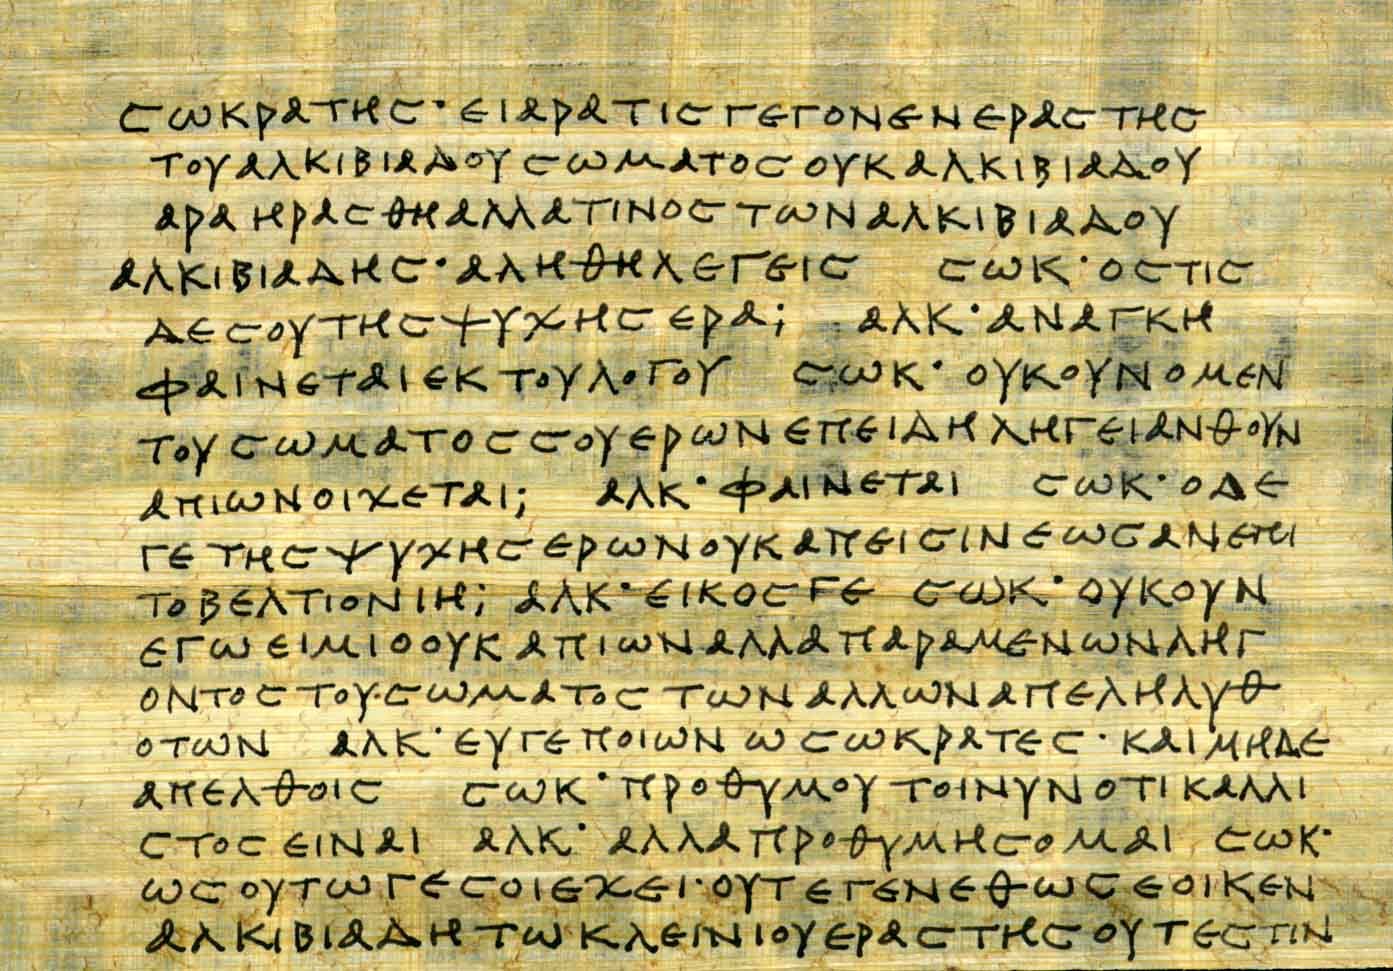 ϹΩΚΡΑΤΗϹ· ΕΙΑΡΑΤΙϹΓΕΓΟΝΕΝΕΡΑϹΤΗϹ
ΤΟΥΑΛΚΙΒΙΑΔΟΥϹΩΜΑΤΟϹΟΥΚΑΛΚΙΒΙΑΔΟΥ
ΑΡΑΗΡΑϹΘΗΑΛΛΑΤΙΝΟϹΤΩΝΑΛΚΙΒΙΑΔΟΥ
ΑΛΚΙΒΙΑΔΗϹ· ΑΛΗΘΗΛΕΓΕΙϹ ϹΩΚ· ΟϹΤΙϹ
ΔΕϹΟΥΤΗϹΨΥΧΗϹΕΡΑ; ΑΛΚ· ΑΝΑΓΚΗ
ΦΑΙΝΕΤΑΙΕΚΤΟΥΛΟΓΟΥ ϹΩΚ· ΟΥΚΟΥΝΟΜΕΝ
ΤΟΥϹΩΜΑΤΟϹϹΟΥΕΡΩΝΕΠΕΙΔΗΛΗΓΕΙΑΝΘΟΥΝ
ΑΠΙΩΝΟΙΧΕΤΑΙ; ΑΛΚ· ΦΑΙΝΕΤΑΙ ϹΩΚ· ΟΔΕ
ΓΕΤΗϹΨΥΧΗϹΕΡΩΝΟΥΚΑΠΕΙϹΙΝΕΩϹΑΝΕΠΙ
ΤΟΒΕΛΤΙΟΝΙΗ; ΑΛΚ· ΕΙΚΟϹΓΕ ϹΩΚ· ΟΥΚΟΥΝ
ΕΓΩΕΙΜΙΟΟΥΚΑΠΙΩΝΑΛΛΑΠΑΡΑΜΕΝΩΝΛΗΓ
ΟΝΤΟϹΤΟΥ·ϹΩΜΑΤΟϹΤΩΝΑΛΛΩΝΑΠΕΛΗΛΥΘ
ΟΤΩΝ ΑΛΚ· ΕΥΓΕΠΟΙΩΝΩϹΩΚΡΑΤΕϹ· ΚΑΙΜΗΔΕ
ΑΠΕΛΘΟΙϹ ϹΩΚ· ΠΡΟΘΥΜΟΥΤΟΙΝΥΝΟΤΙΚΑΛΛΙ
ϹΤΟϹΕΙΝΑΙ ΑΛΚ· ΑΛΛΑΠΡΟΘΥΜΗϹΟΜΑΙ ϹΩΚ·
ΩϹΟΥΤΩΓΕϹΟΙΕΧΕΙ·ΟΥΤΕΓΕΝΕΘΩϹΕΟΙΚΕΝ
ΑΛΚΙΒΙΑΔΗΤΩΚΛΕΙΝΙΟΥΕΡΑϹΤΗϹΟΥΤΕϹΤΙΝ